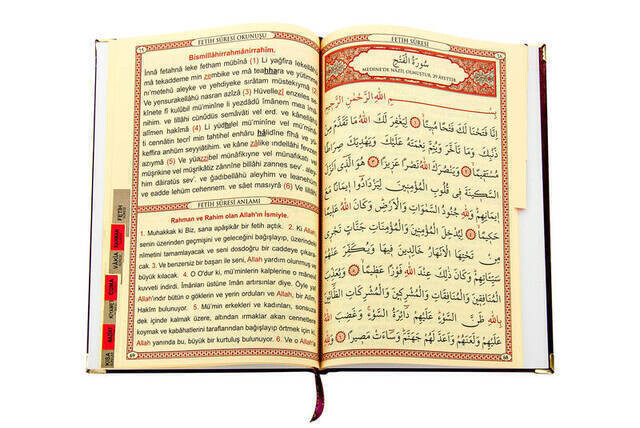 FETİH SÛRESİ OKUNUŞU
Bismillâhirrahmânirrahîm.
İnnâ fetahnâ leke fetham mübînâ (1) Li yağfira lekellâhü
mâ tekaddeme min zembike ve mâ teahhara ve yütimme
ni'metehû aleyke ve yehdiyeke sırâtam müstekıymâ (2)
Ve yensurakellâhü nasran azîzâ (3) Hüvellezî enzeles se-
kînete fî kulûbil mü'minîne li yezdâdû îmânem mea îmâ-
nihim. ve lillâhi cünûdüs semâvâti vel erd. ve kânellâhü
alîmen hakîmâ (4) Li yüdhılel mü'minîne vel mü'minâ-
ti cennâtin tecrî min tahtihel enhâru hâlidîne fîhâ ve yü-
keffira anhüm seyyiâtihim. ve kâne zâlike ındellâhi fevzen
azıymâ (5) Ve yüazzibel münâfikıyne vel münâfikâti vel
müşrikîne vel müşrikâtiz zânnîne billâhi zannes sev'. aley-
him dâiratüs sev'. ve ğadıbellâhü aleyhim ve leanehüm
ve eadde lehüm cehennem. ve sâet masıyrâ (6) Ve lillâhi
FETİH SÛRESİ ANLAMI
Rahman ve Rahim olan Allah'ın İsmiyle.
1. Muhakkak ki Biz, sana apâşikar bir fetih açtık. 2. Ki Allah
senin üzerinden geçmişini ve geleceğini bağışlayıp, üzerindeki
nîmetini tamamlayacak ve seni dosdoğru bir caddeye çıkara-
cak. 3. Ve benzersiz bir başarı ile seni, Allah yardım olunmuş ve
büyük kılacak. 4. O O'dur ki, mü'minlerin kalplerine o mânevî
kuvveti indirdi. Îmânları üstüne îmân artırsınlar diye. Öyle ya!
Allah'ındır bütün o göklerin ve yerin orduları ve Allah, bir Alîm,
Hakîm bulunuyor. 5. Mü'min erkekleri ve kadınları, sonsuza
dek içinde kalmak üzere, altından ırmaklar akan cennetlere
koymak ve kabahatlerini taraflarından bağışlayıp örtmek için ki
Allah yanında bu, büyük bir kurtuluş bulunuyor. 6. Ve o Allah'a
69
FETİH
VÂKIA
CUMA
KIYAME
NEBE
KISA
FETİH SÛRESİ
سُورَةُ الْفَتْحِ
MEDİNE'DE NAZİL OLMUŞTUR, 29 AYETTİR
بِسْمِ اللّٰهِ الرَّحْمٰنِ الرَّحِيمِ
اِنَّا فَتَحْنَا لَكَ فَتْحًا مُبِينًا ﴿١﴾ لِيَغْفِرَ لَكَ اللّٰهُ مَا تَقَدَّمَ مِنْ
ذَنْبِكَ وَمَا تَاَخَّرَ وَيُتِمَّ نِعْمَتَهُ عَلَيْكَ وَيَهْدِيَكَ صِرَاطًا
مُسْتَقِيمًا ﴿٢﴾ وَيَنْصُرَكَ اللّٰهُ نَصْرًا عَزِيزًا ﴿٣﴾ هُوَ الَّذِى اَنْزَلَ
السَّكِينَةَ فِى قُلُوبِ الْمُؤْمِنِينَ لِيَزْدَادُوا اِيمَانًا مَعَ
اِيمَانِهِمْ وَلِلّٰهِ جُنُودُ السَّمٰوَاتِ وَالْاَرْضِ وَكَانَ اللّٰهُ عَلِيمًا
حَكِيمًا ﴿٤﴾ لِيُدْخِلَ الْمُؤْمِنِينَ وَالْمُؤْمِنَاتِ جَنَّاتٍ تَجْرِى
مِنْ تَحْتِهَا الْاَنْهَارُ خَالِدِينَ فِيهَا وَيُكَفِّرَ عَنْهُمْ
سَيِّئَاتِهِمْ وَكَانَ ذٰلِكَ عِنْدَ اللّٰهِ فَوْزًا عَظِيمًا ﴿٥﴾ وَيُعَذِّبَ
الْمُنَافِقِينَ وَالْمُنَافِقَاتِ وَالْمُشْرِكِينَ وَالْمُشْرِكَاتِ الظَّانِّينَ
بِاللّٰهِ ظَنَّ السَّوْءِ عَلَيْهِمْ دَائِرَةُ السَّوْءِ وَغَضِبَ اللّٰهُ
عَلَيْهِمْ وَلَعَنَهُمْ وَاَعَدَّ لَهُمْ جَهَنَّمَ وَسَاءَتْ مَصِيرًا ﴿٦﴾ وَلِلّٰهِ
68